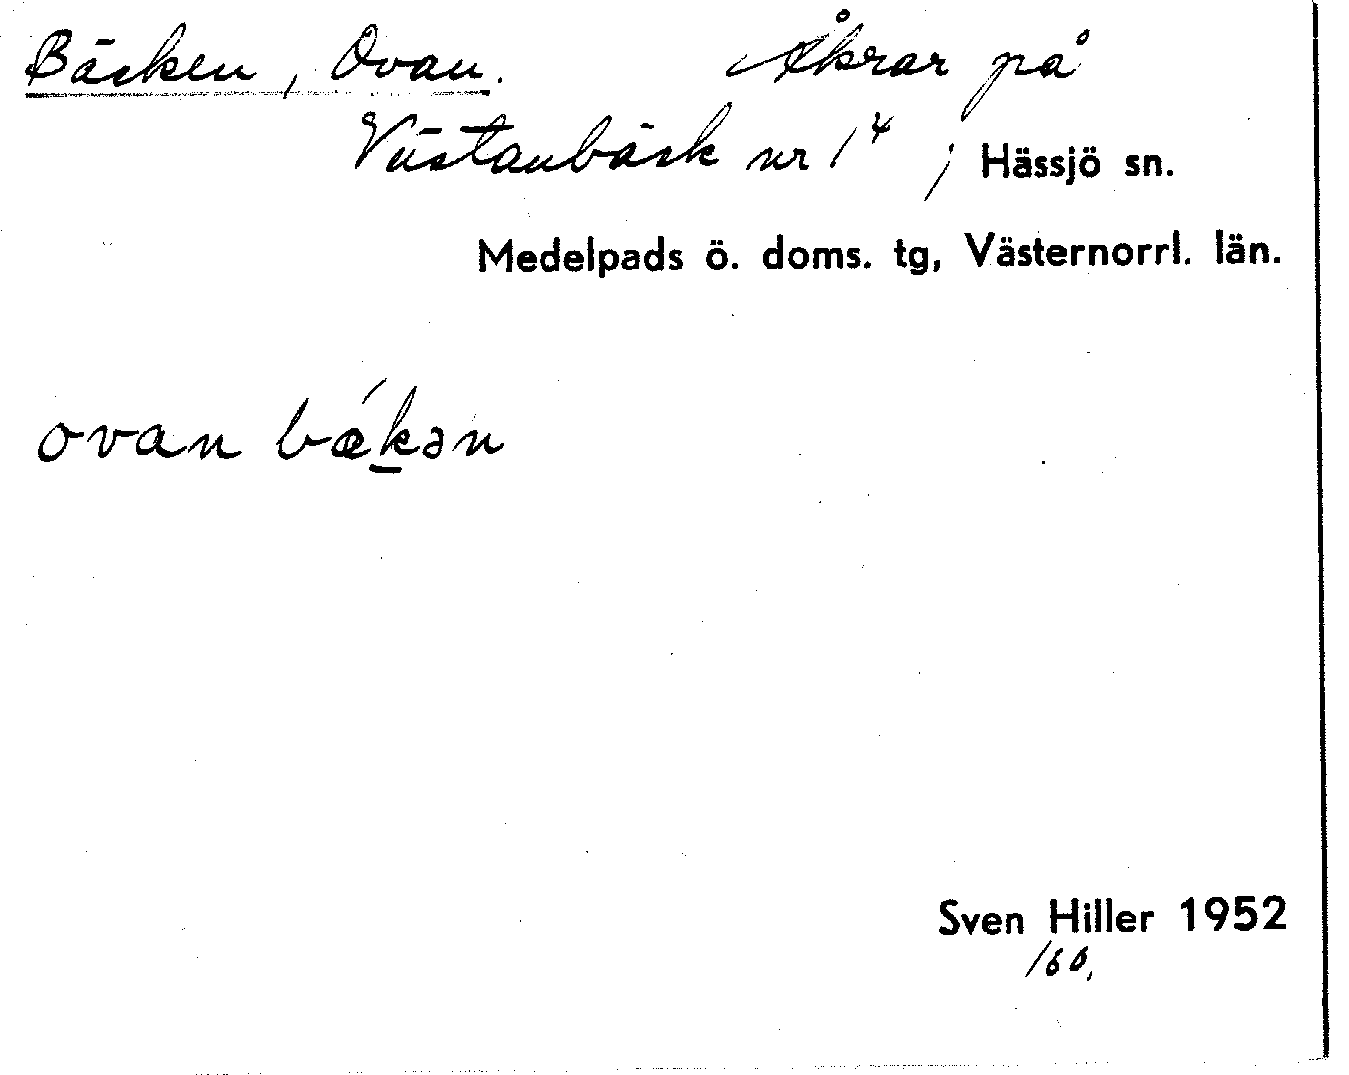 Bäcken, Ovan. Åkrar på
Västanbäck nr 1⁴, Hässjö sn.
Medelpads ö. doms. tg, Västernorrl. län.
ovan bǽk̲ən
Sven Hiller 1952